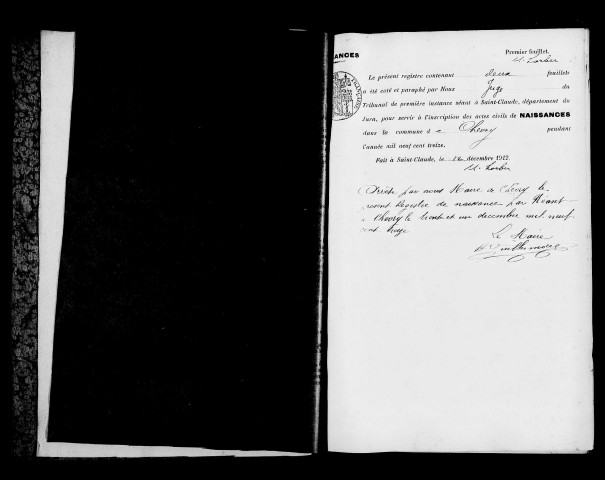 ANCES
Premier feuillet.
Le présent registre contenant deux feuillets
a été coté et paraphé par Nous Juge du
Tribunal de première instance séant à Saint-Claude, département du
Jura, pour servir à l'inscription des actes civils de NAISSANCES
dans la commune d e Chevry pendant
l'année mil neuf cent treize.
Fait à Saint-Claude, le décembre 1912.
par nous Maire de Chevry le
registre de naissance par Néant
Chevry le trente et un décembre mil neuf
cent treize
Le Maire